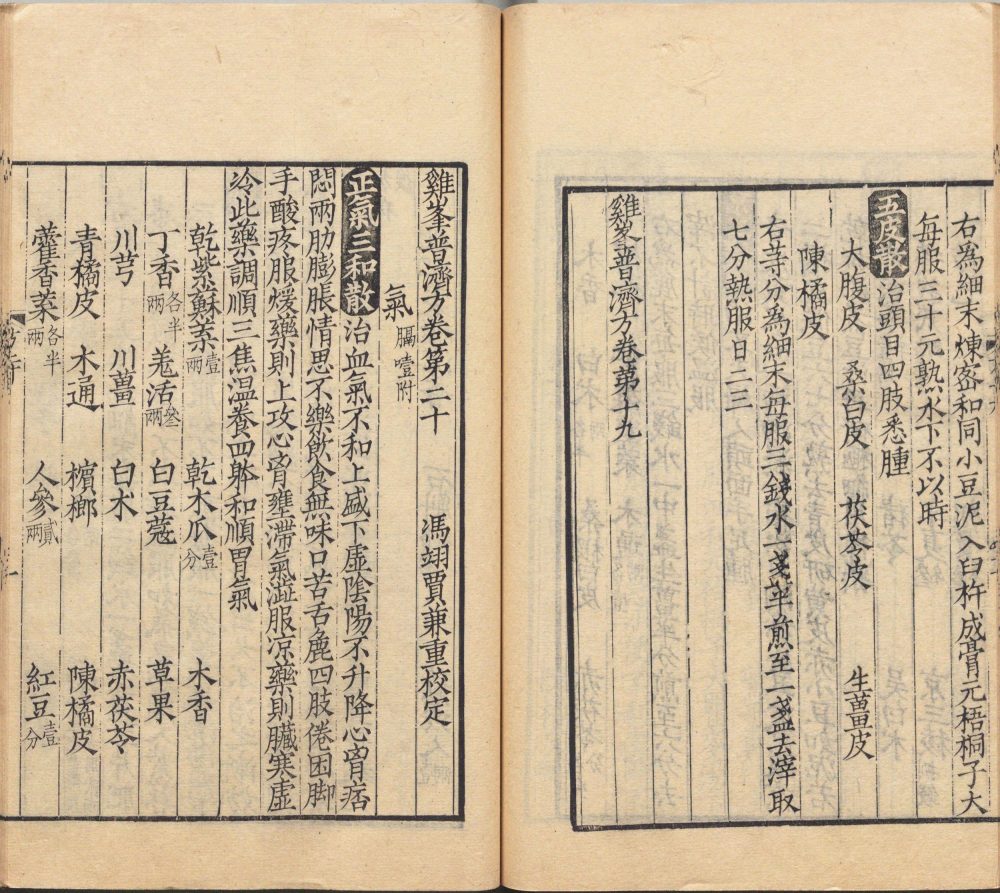 右為細末煉宻和同小豆泥入臼杵成膏元梧桐子大
每服三十元熟水下不以時
五皮散治頭目四肢悉腫
大腹皮 桑白皮 茯苓皮 生薑皮
陳橘皮
右等分為細末每服三錢水一盞半煎至一盞去滓取
七分熱服日二三
雞峯普濟方卷第十九
雞峯普濟方卷第二十 馮翊賈兼重校定
氣 膈噎附
正氣三和散治血氣不和上盛下虛陰陽不升降心胷痞
悶兩肋膨脹情思不樂飲食無味口苦舌麁四肢倦困脚
手酸疼服煖藥則上攻心胷壅滯氣澁服凉藥則臟寒虛
冷此藥調順三焦温養四躰和順胃氣
乾紫蘇葉壹兩 乾木瓜壹分 木香
丁香各半兩 羗活叁兩 白豆蔻 草果
川芎 川薑 白术 赤茯苓
青橘皮 木通 檳榔 陳橘皮
藿香葉各半兩 人參貳兩 紅豆壹分